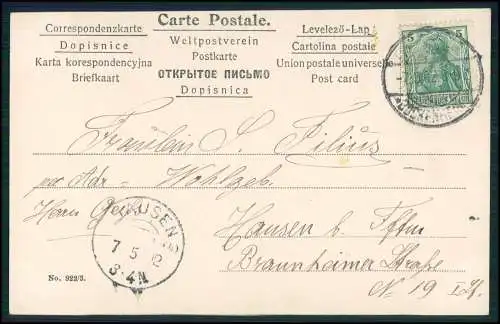 Carte Postale.
Correspondenzkarte
Dopisnice
Karta korespondencyjna
Briefkaart
Weltpostverein
Postkarte
ОТКРЫТОЕ ПИСЬМО
Dopisnica
Levelező-Lap
Cartolina postale
Union postale universelle
Post card
5 5
Fräulein S. Filius
per Adr. Wohlgeb.
Herrn
HAUSEN
7 5 12
3-4N
Hausen b. Ffm
Braunheimer Straße
No 19 I
No. 922/3.